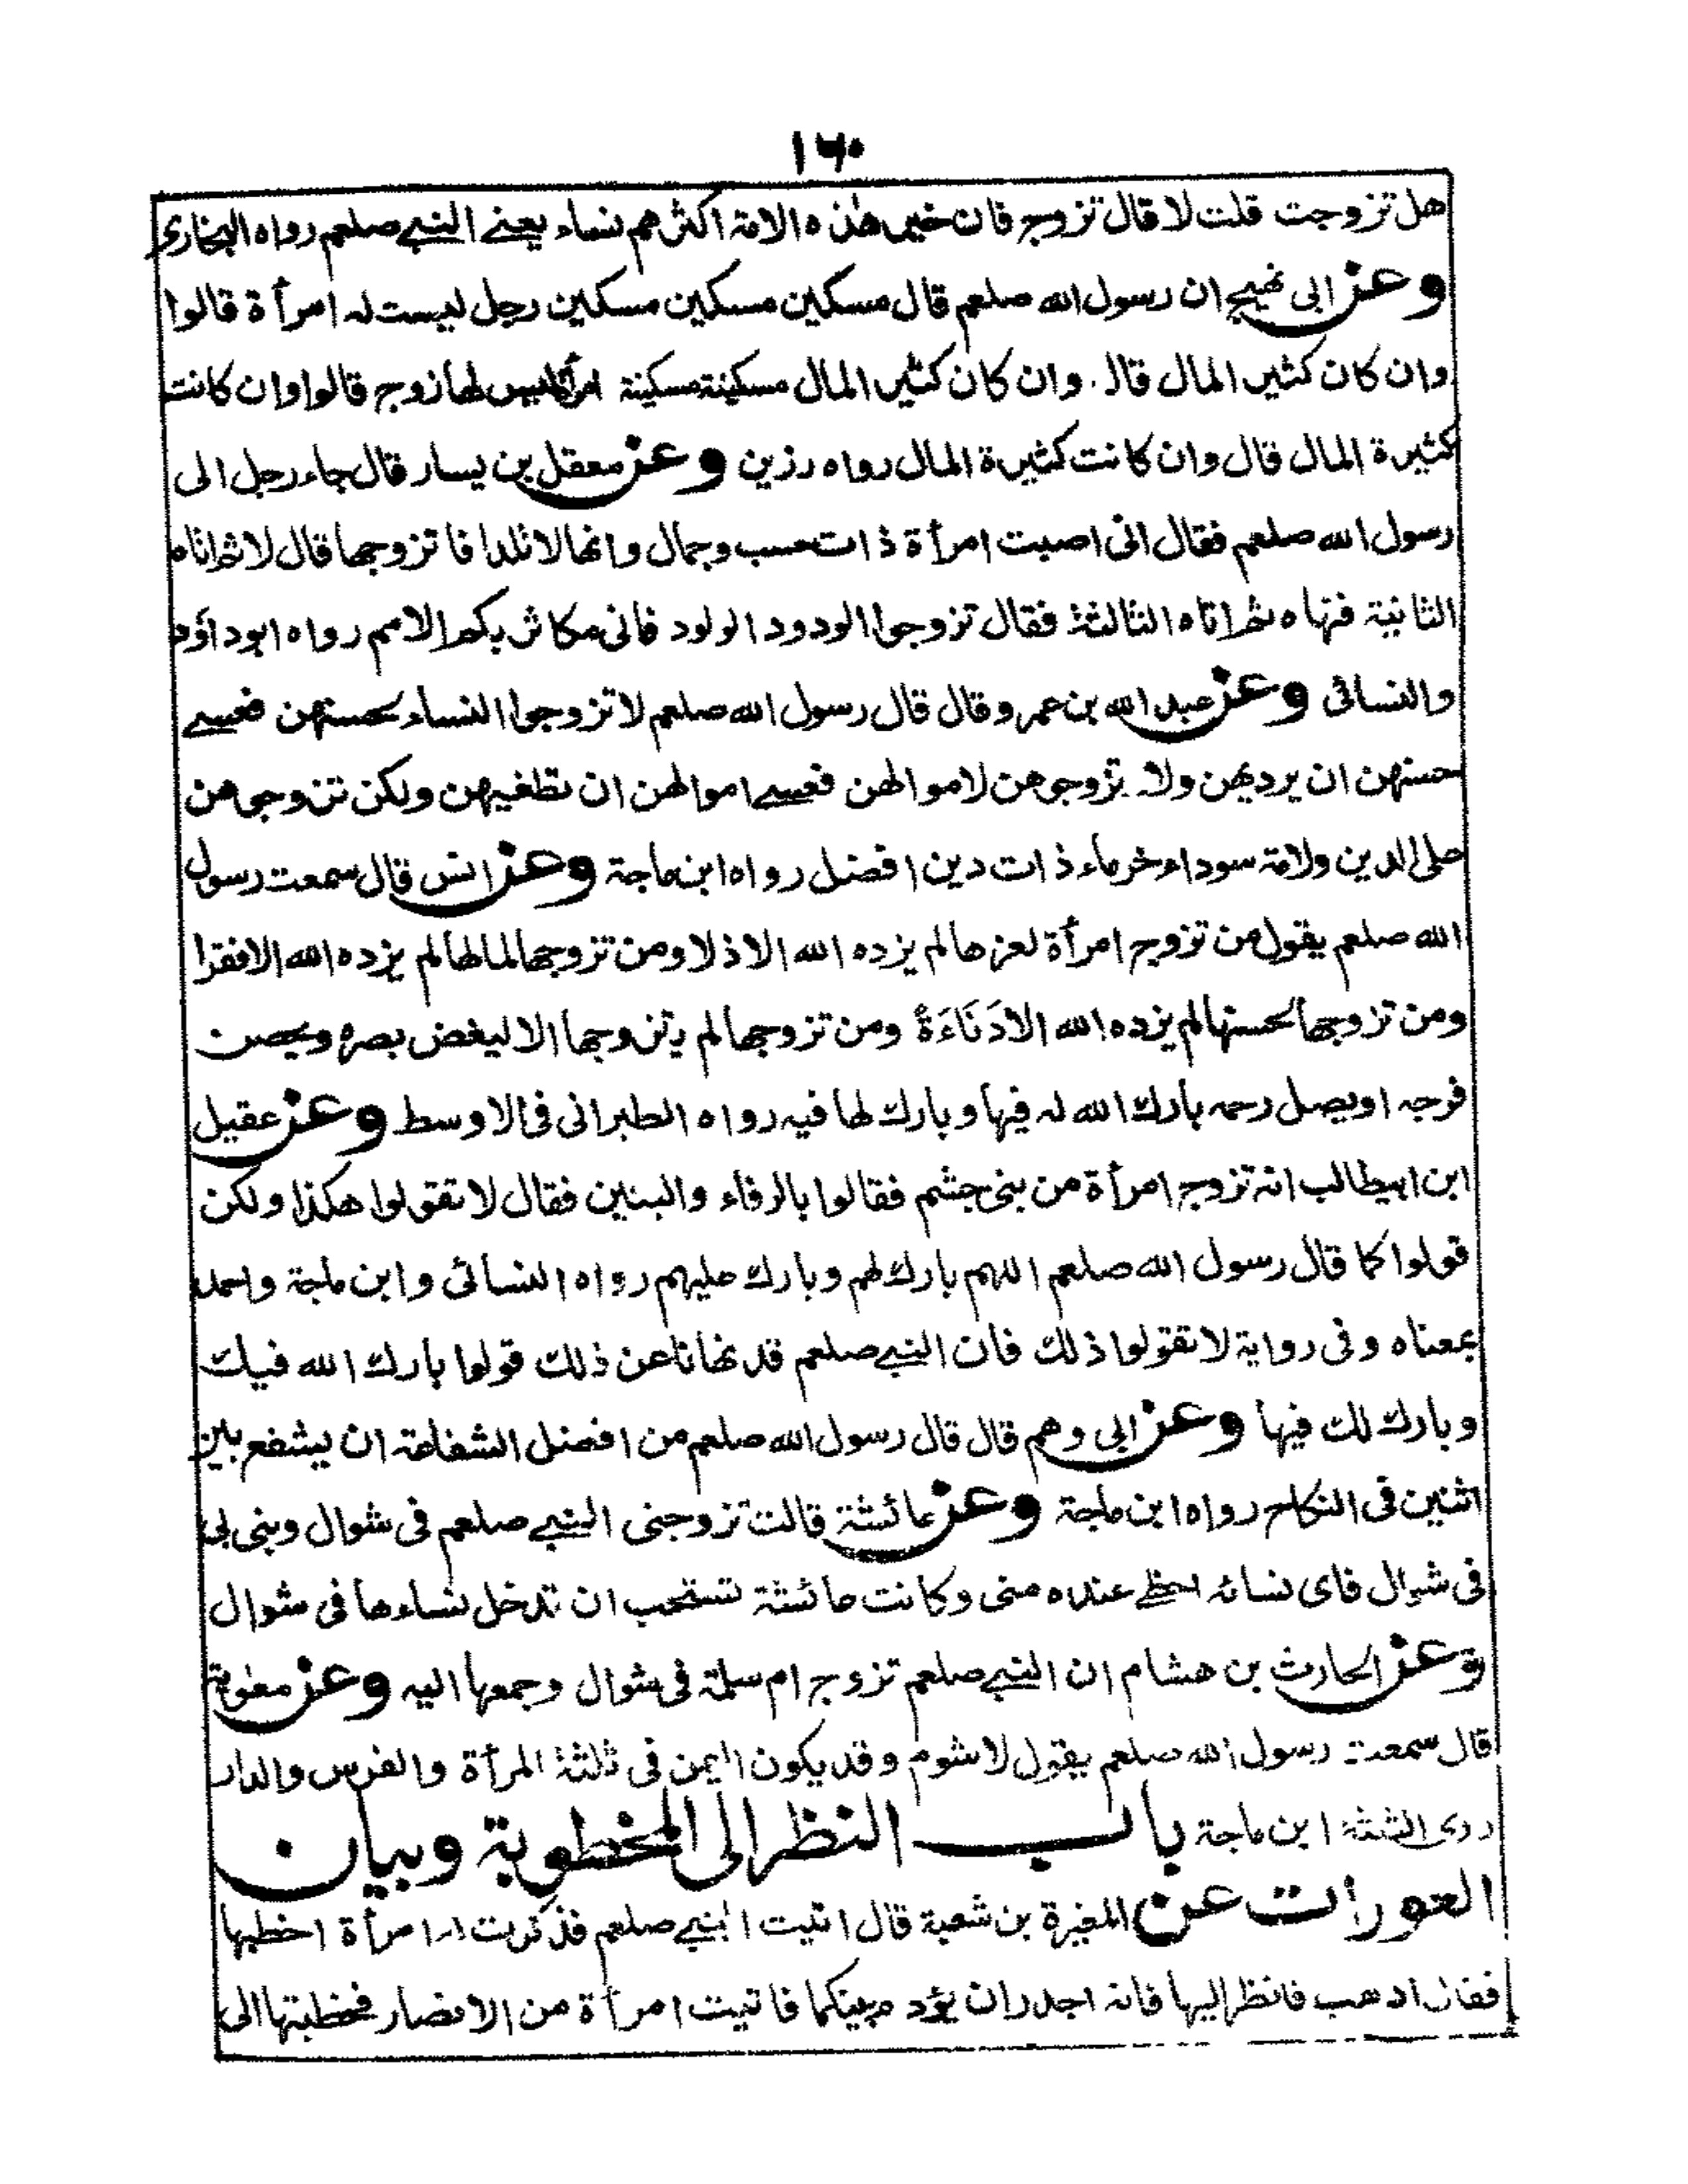 ١٦٠
هل تزوجت قلت لا قال تزوج فان خير هذه الامة اكثرهم نساء يعنى النبي صلعم رواه البخارى
وعن ابى نجيح ان رسول الله صلعم قال مسكين مسكين مسكين رجل ليست له امرأة قالوا
وان كان كثير المال قال وان كان كثير المال مسكينة مسكينة امرأة ليس لها زوج قالوا وان كانت
كثيرة المال قال وان كانت كثيرة المال رواه رزين وعن معقل بن يسار قال جاء رجل الى
رسول الله صلعم فقال انى اصبت امرأة ذات حسب وجمال وانها لا تلد افاتزوجها قال لا ثم اتاه
الثانية فنهاه ثم اتاه الثالثة فقال تزوجوا الودود الولود فانى مكاثر بكم الامم رواه ابوداؤد
والنسائى وعن عبد الله بن عمرو قال قال رسول الله صلعم لا تزوجوا النساء لحسنهن فعسى
حسنهن ان يرديهن ولا تزوجوهن لاموالهن فعسى اموالهن ان تطغيهن ولكن تزوجوهن
على الدين ولامة سوداء خرماء ذات دين افضل رواه ابن ماجة وعن انس قال سمعت رسول
الله صلعم يقول من تزوج امرأة لعزها لم يزده الله الا ذلا ومن تزوجها لمالها لم يزده الله الا فقرا
ومن تزوجها لحسنها لم يزده الله الا دَنَاءَةً ومن تزوجها لم يتزوجها الا ليغض بصره ويحصن
فرجه او يصل رحمه بارك الله له فيها وبارك لها فيه رواه الطبرانى فى الاوسط وعن عقيل
ابن ابيطالب انه تزوج امرأة من بنى جشم فقالوا بالرفاء والبنين فقال لا تقولوا هكذا ولكن
قولوا كما قال رسول الله صلعم اللهم بارك لهم وبارك عليهم رواه النسائى وابن ماجة واحمد
بمعناه وفى رواية لا تقولوا ذلك فان النبي صلعم قد نهانا عن ذلك قولوا بارك الله فيك
وبارك لك فيها وعن ابى رهم قال قال رسول الله صلعم من افضل الشفاعة ان يشفع بين
اثنين فى النكاح رواه ابن ماجة وعن عائشة قالت تزوجنى النبي صلعم فى شوال وبنى بى
فى شوال فاى نسائه احظى عنده منى وكانت عائشة تستحب ان تدخل نساءها فى شوال
وعن الحارث بن هشام ان النبي صلعم تزوج ام سلمة فى شوال وجمعها اليه وعن معوية
قال سمعت رسول الله صلعم يقول لا شوم وقد يكون اليمن فى ثلثة المرأة والفرس والدار
روى الثلثة ابن ماجة باب النظر الى المخطوبة وبيان
العورات عن المغيرة بن شعبة قال اتيت النبي صلعم فذكرت له امرأة اخطبها
فقال اذهب فانظر اليها فانه اجدر ان يؤدم بينكما فاتيت امرأة من الانصار فخطبتها الى